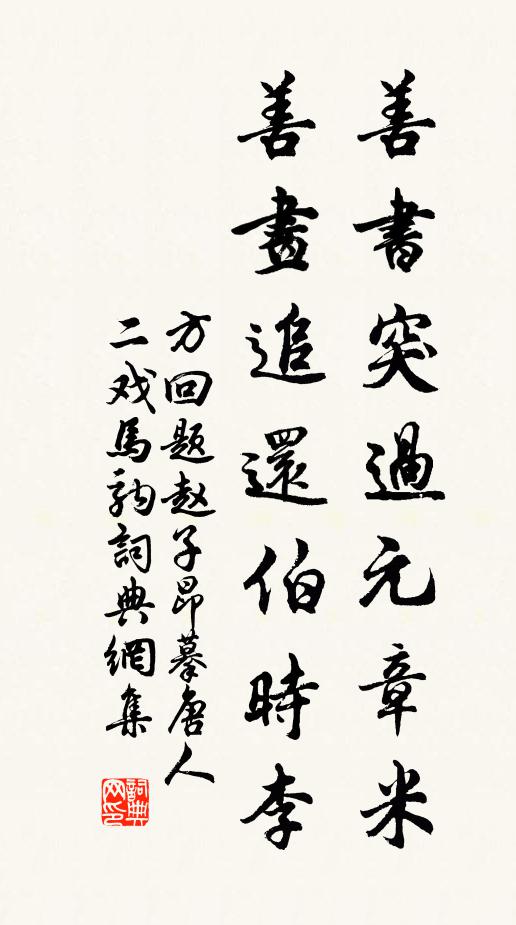 善書突過元章米
善畫追還伯時李
方回题赵子昂摹唐人
二戏馬驹詞典網集
詞典
网印